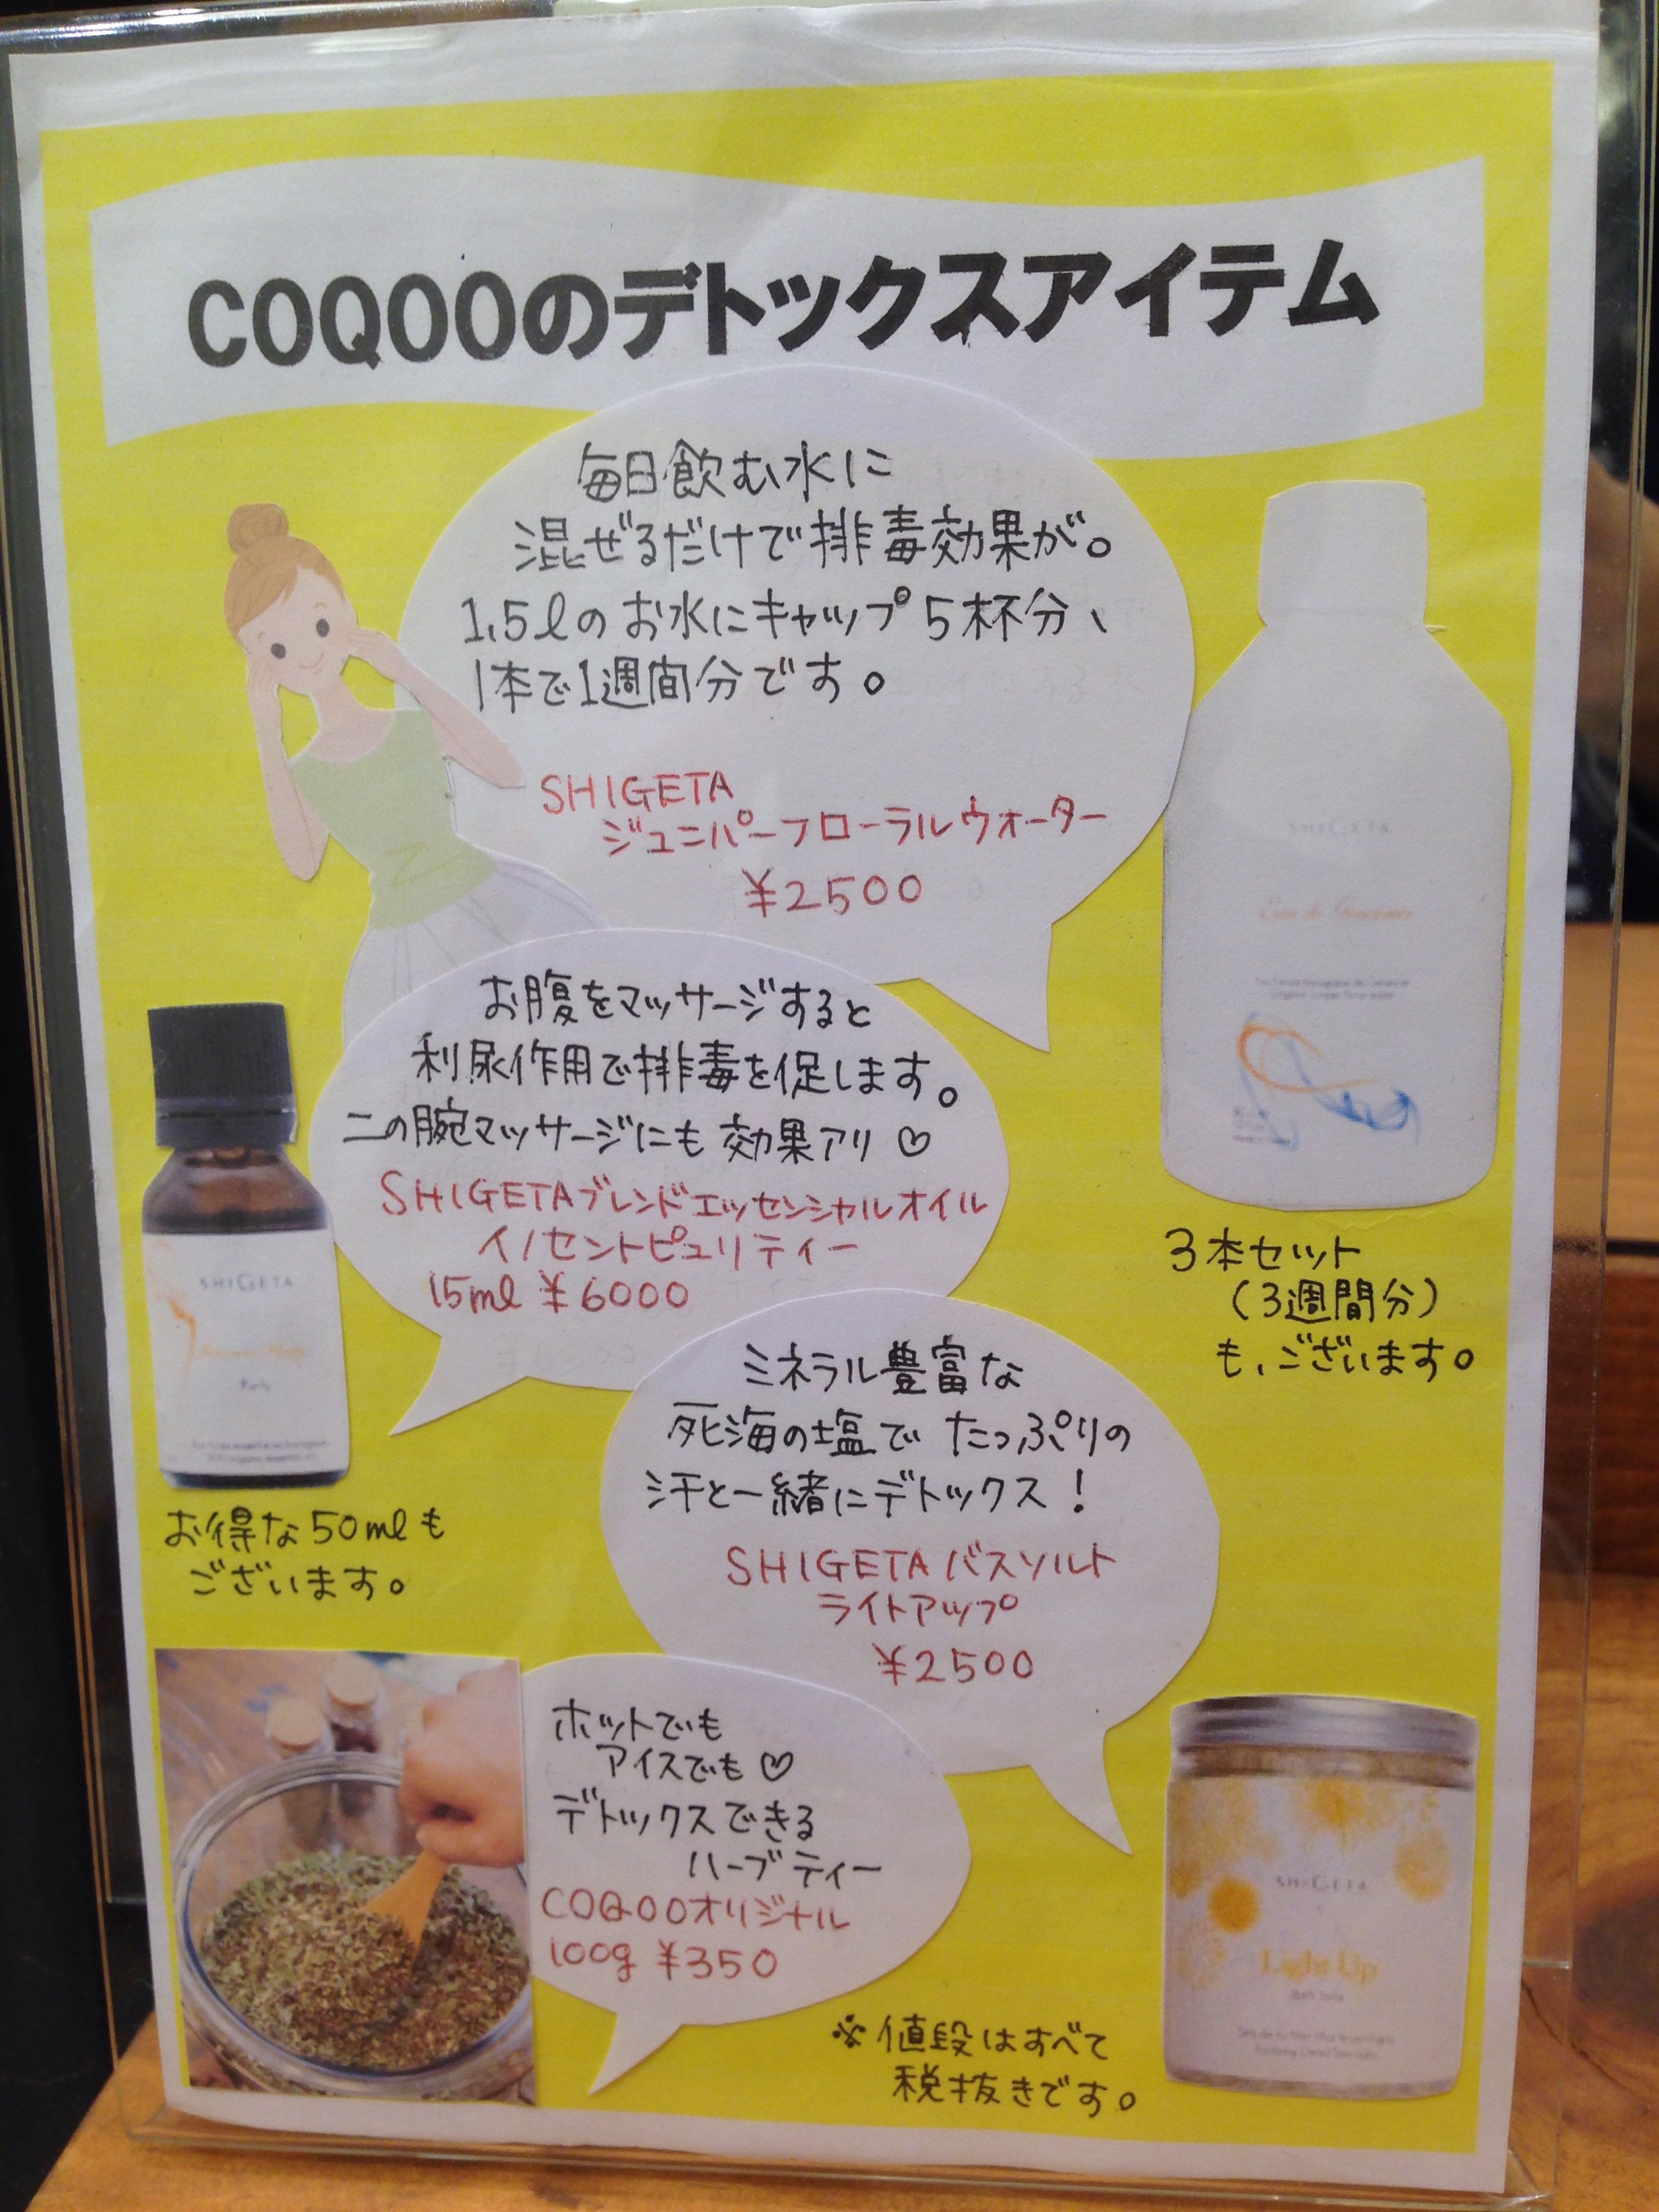 COQOOのデトックスアイテム
毎日飲む水に
混ぜるだけで排毒効果が。
1.5lのお水にキャップ5杯分、
1本で1週間分です。
SHIGETA
ジュニパーフローラルウォーター
¥2500
SHIGETA
3本セット
(3週間分)
も、ございます。
お腹をマッサージすると
利尿作用で排毒を促します。
二の腕マッサージにも効果アリ♡
SHIGETAブレンドエッセンシャルオイル
イノセントピュリティー
15ml ¥6000
SHIGETA
お得な50mlも
ございます。
ミネラル豊富な
死海の塩でたっぷりの
汗と一緒にデトックス!
SHIGETAバスソルト
ライトアップ
¥2500
SHIGETA
Light Up
ホットでも
アイスでも♡
デトックスできる
ハーブティー
COQOOオリジナル
100g ¥350
※値段はすべて
税抜きです。